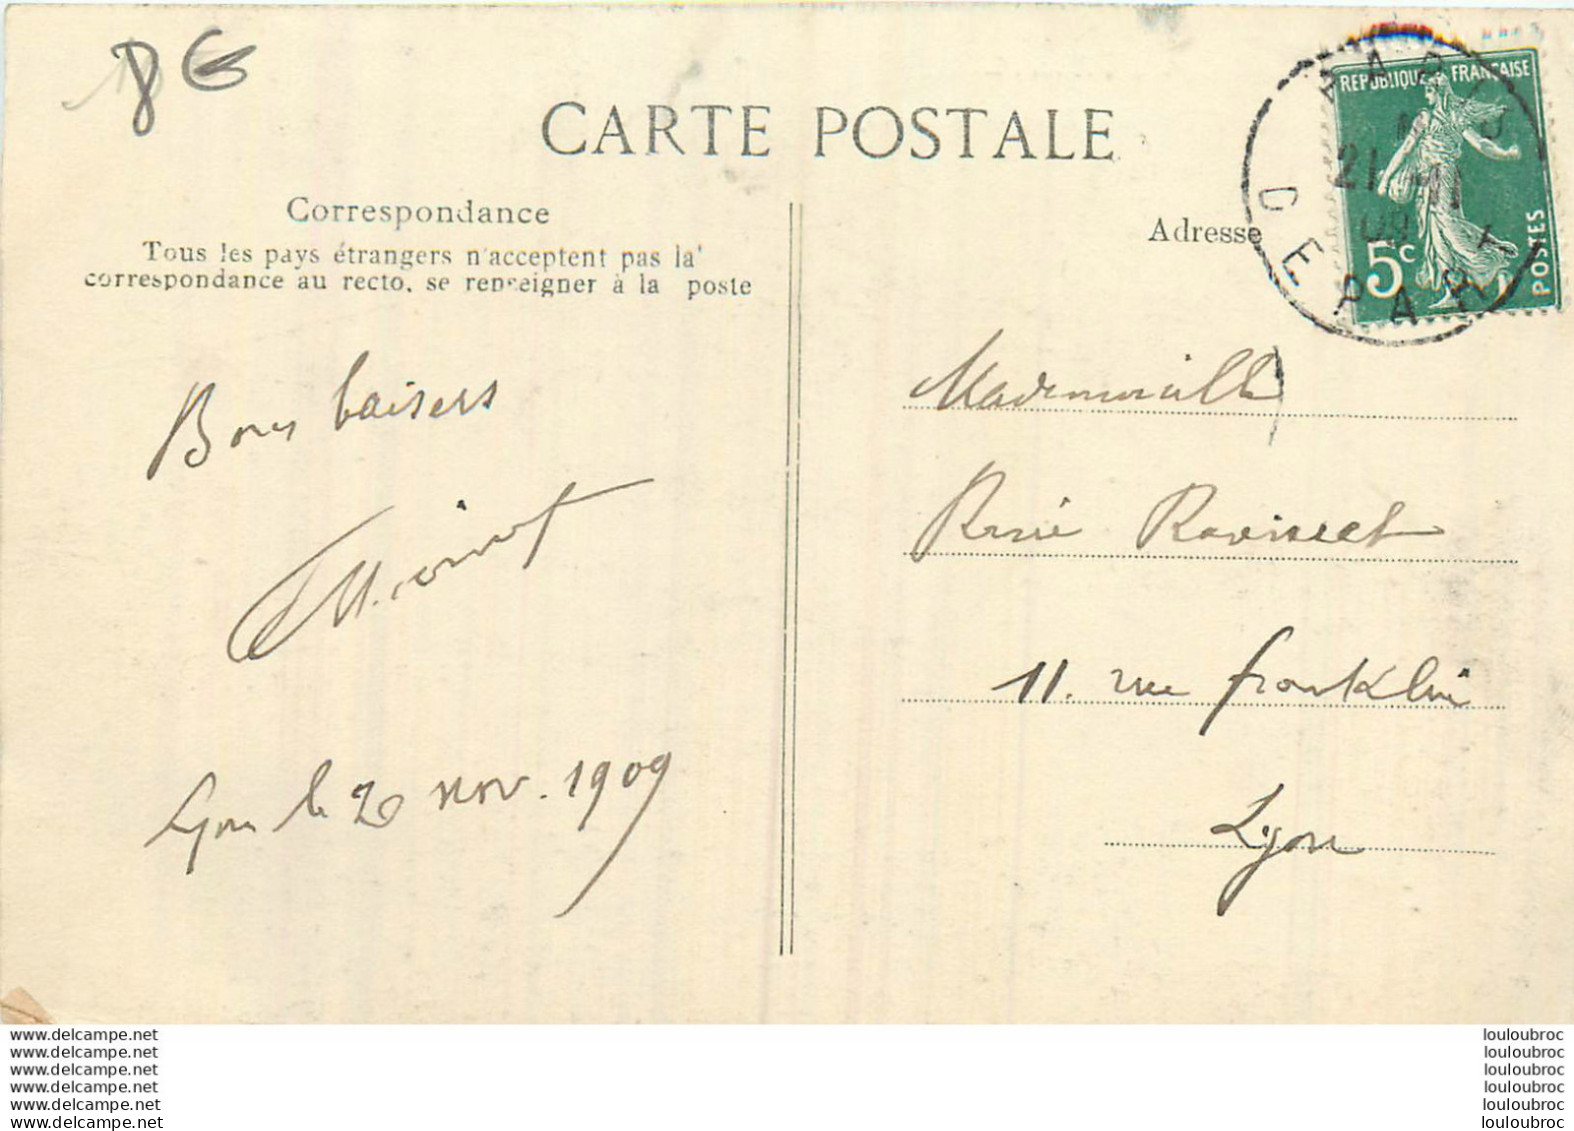 8€
CARTE POSTALE
Correspondance
Tous les pays étrangers n'acceptent pas la
correspondance au recto, se renseigner à la poste
Adresse
REPUBLIQUE FRANÇAISE
5c
POSTES
21 11
09
DEPART
Bons baisers
Lyon le 20 nov. 1909
Mademoiselle
11. rue Franklin
Lyon
www.delcampe.net
www.delcampe.net
www.delcampe.net
www.delcampe.net
www.delcampe.net
www.delcampe.net
louloubroc
louloubroc
louloubroc
louloubroc
louloubroc
louloubroc